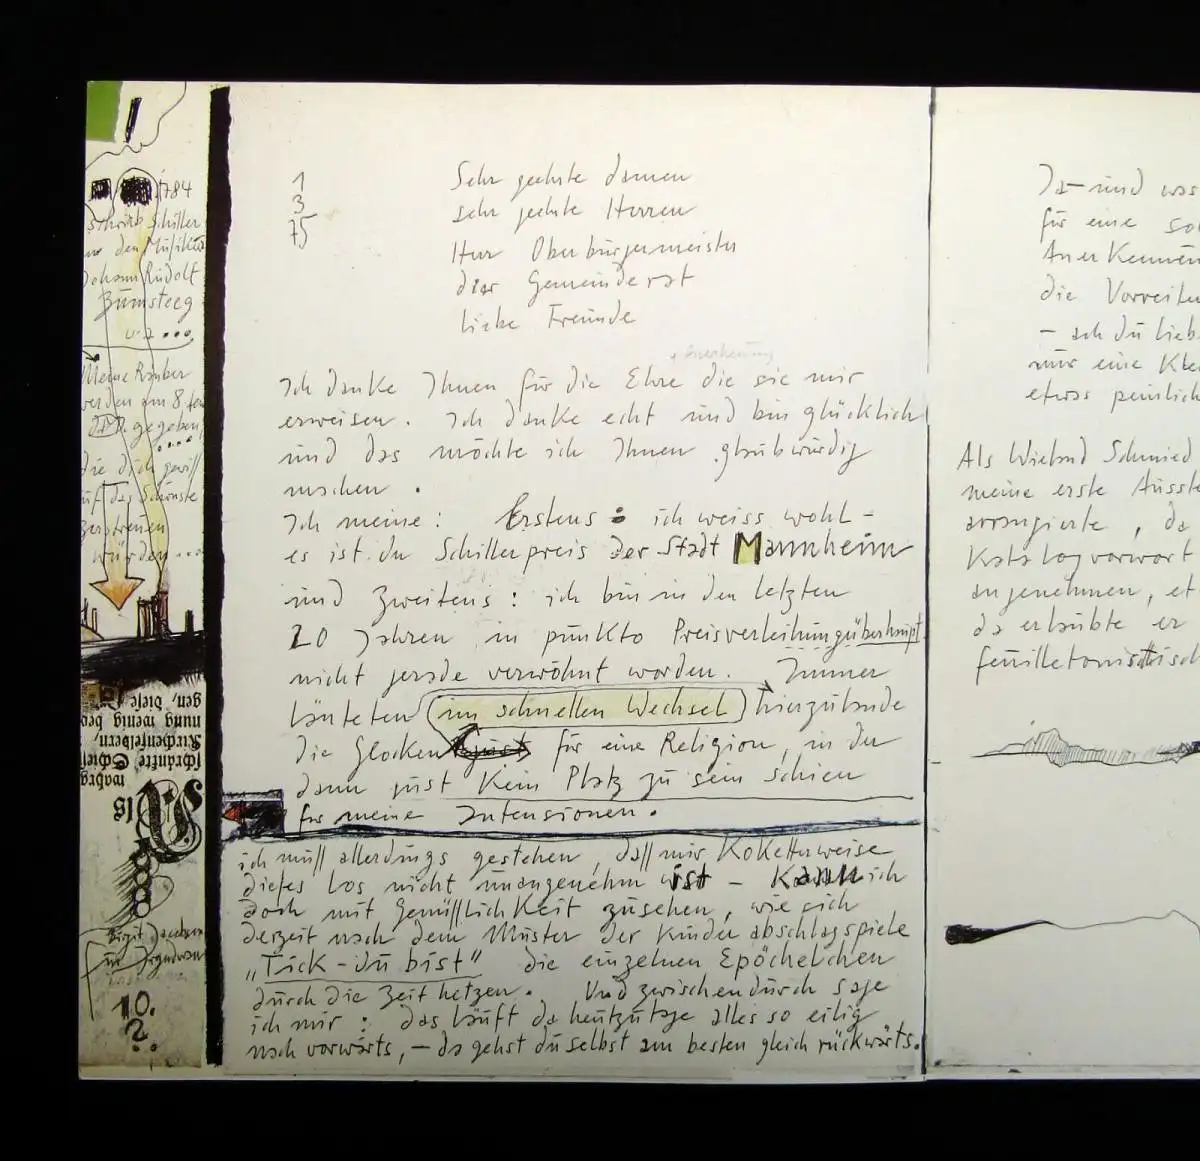 1784
schrieb Schiller
an den Musikus
Johann Rudolf
Zumsteeg
u.a ...
Meine Räuber
werden am 8 ten
Jan. gegeben,
....
die dich gewiß
auf das Schönste
zerstreuen
würden ...
gen, diese
nung wenig
Kirchenfeldern,
schränkte
als
10.
?.
1
3
75
Sehr geehrte Damen
sehr geehrte Herren
Herr Oberbürgermeister
der Gemeinderat
liebe Freunde
Ich danke Ihnen für die Ehre die sie mir
erweisen. Ich danke echt und bin glücklich
und das möchte ich Ihnen glaubwürdig
machen.
Ich meine: Erstens: ich weiss wohl -
es ist der Schillerpreis der Stadt Mannheim
und zweitens: ich bin in den letzten
20 Jahren in punkto Preisverleihung überhaupt
nicht gerade verwöhnt worden. Immer
läuteten im schnellen Wechsel hierzulande
die Glocken für eine Religion, in der
dann just kein Platz zu sein schien
für meine Intensionen.
ich muß allerdings gestehen, daß mir Koketterweise
dieses Los nicht unangenehm ist - Kann ich
doch mit Gemüßlichkeit zusehen, wie sich
derzeit nach dem Muster der Kinder abschlagspiele
„Tick-du bist" die einzelnen Epöchelchen
durch die Zeit hetzen. Und zwischendurch sage
ich mir: das läuft da heutzutage alles so eilig
nach vorwärts, - da gehst du selbst am besten gleich rückwärts.
Da- und was
für eine
Anerkennun
die Vorreite
- ach du lieb
nur eine Kle
etwas peinlich
Als Wieland Schmied
meine erste Ausste
arrangierte, da
Katalogvorwort
angenehmen, et
da erlaubte er
feuilletonistisch